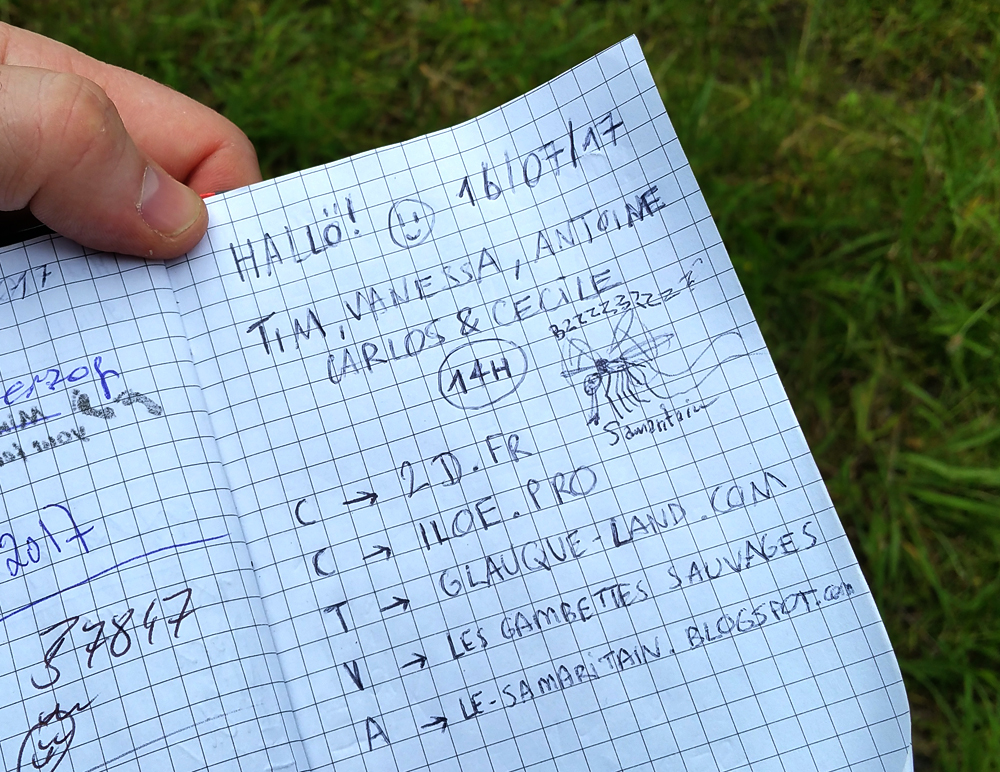 HALLÖ! 16/07/17
TIM, VANESSA, ANTOINE
CARLOS & CECILE
14H
BZZZZZZZZZ
Samaritain
C → 2D.FR
C → ILOE.PRO
T → GLAUQUE-LAND.COM
V → LES GAMBETTES SAUVAGES
A → LE-SAMARITAIN.BLOGSPOT.com
2017
37847